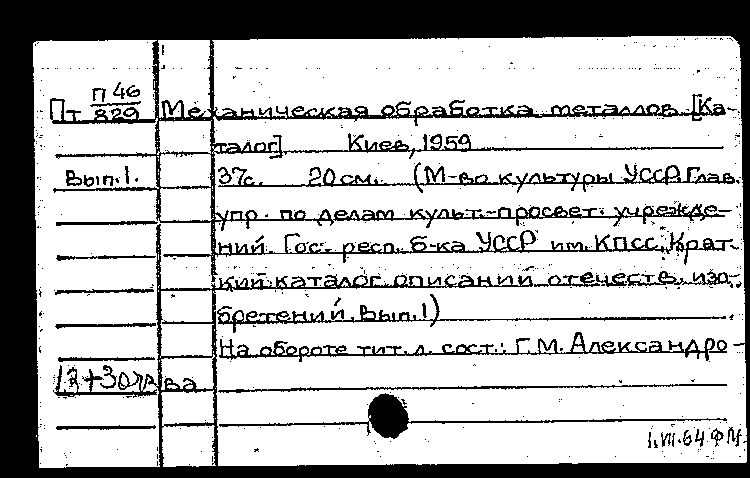 П 46
Пт 829 Механическая обработка металлов [Ка-
талог] Киев, 1959
Вып.1. 37с. 20см. (М-во культуры УССР. Глав.
упр. по делам культ.-просвет. учрежде-
ний. Гос. респ. б-ка УССР им. КПСС. Крат-
кий каталог описаний отечеств. изо-
бретений. Вып.1)
На обороте тит. л. сост.: Г.М. Александро-
ва
1.VII.64 ФМ